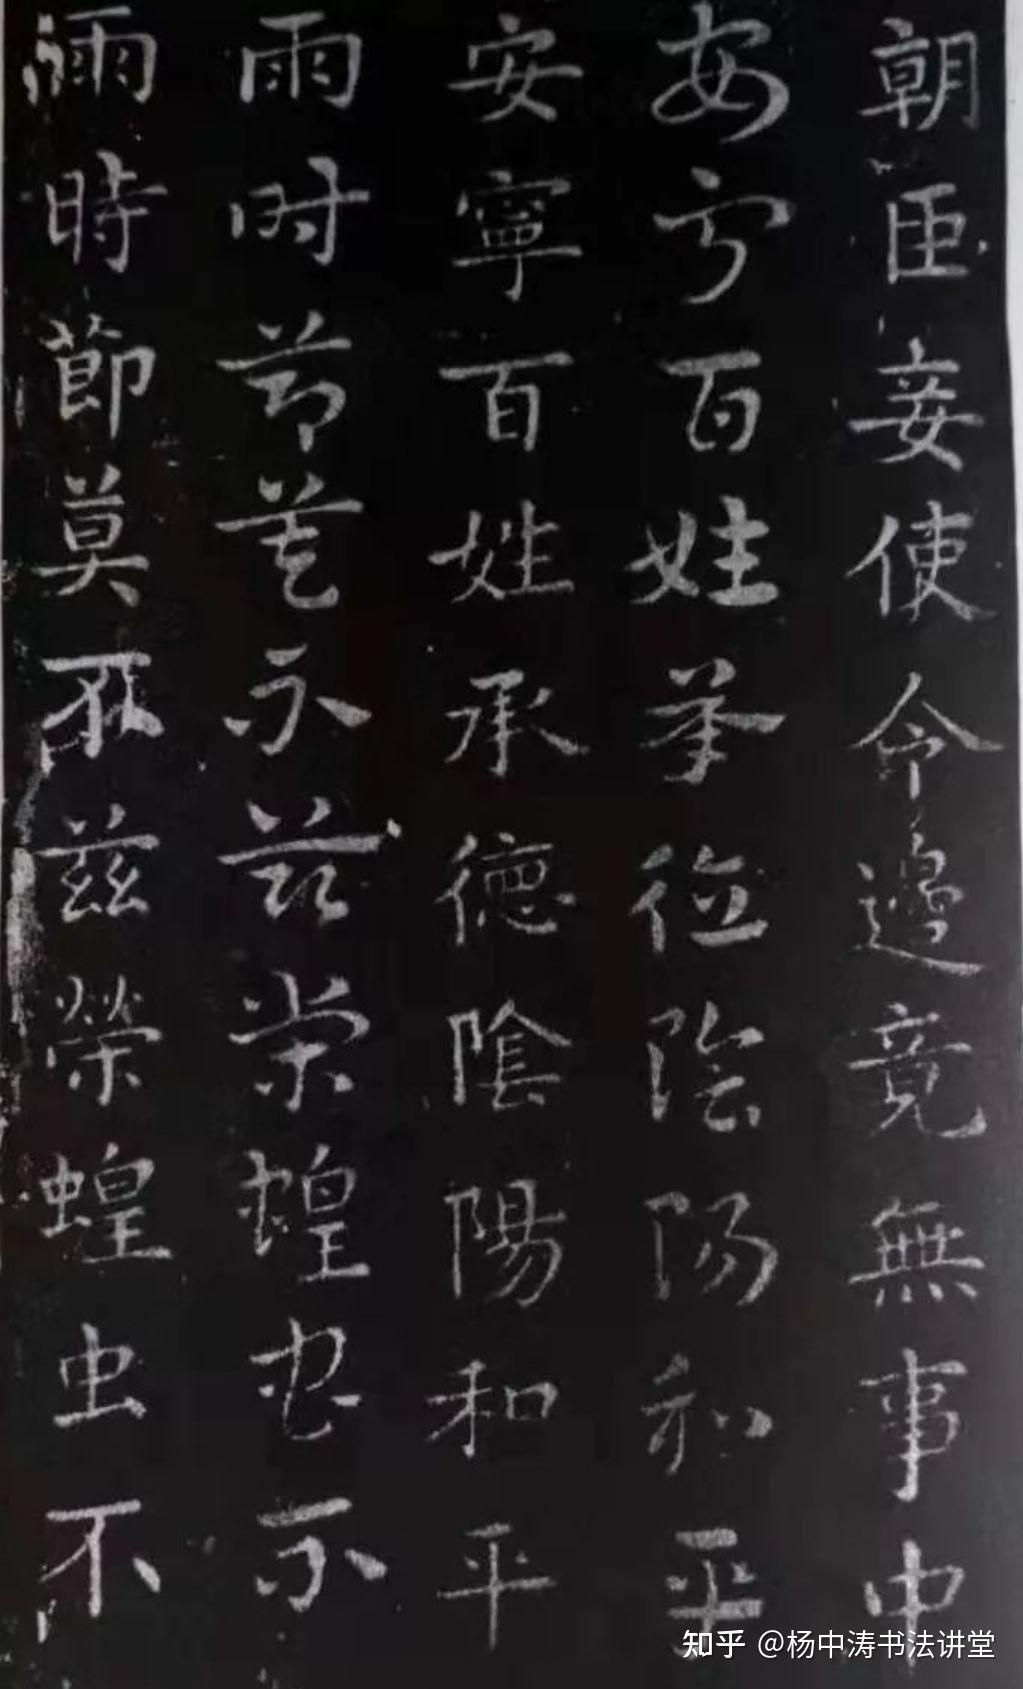 朝臣妾使令邊竟無事中
安寧百姓承德陰陽和平
安寧百姓承德陰陽和平
雨時節莫不茲榮蝗虫不
雨時節莫不茲榮蝗虫不
知乎 @杨中涛书法讲堂